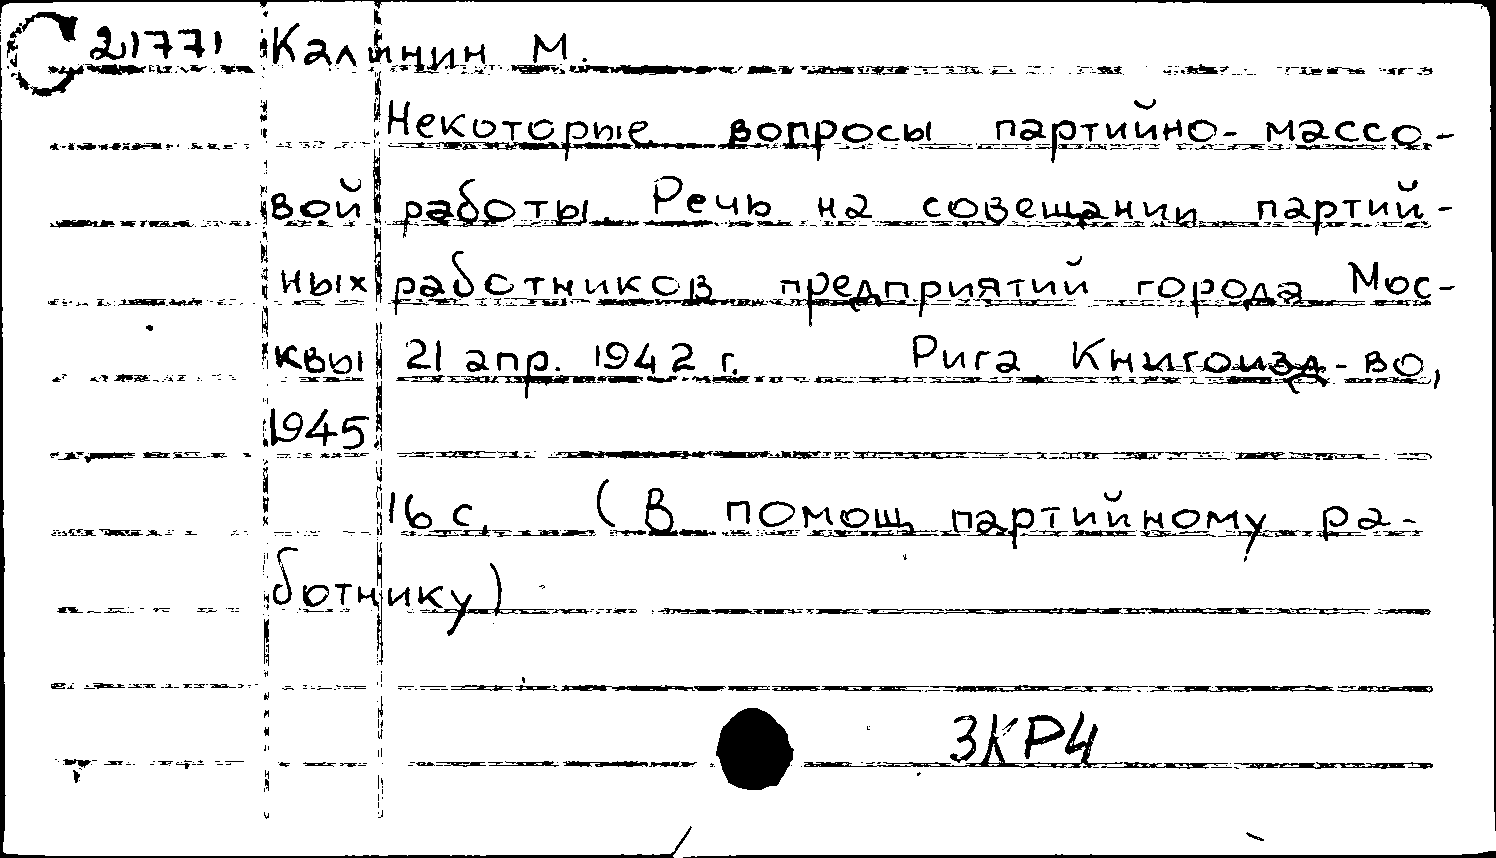 С 21771 Калинин М.
Некоторые вопросы партийно-массо-
вой работы. Речь на совещании партий-
ных работников предприятий города Мос-
квы 21 апр. 1942 г. Рига Книгоизд-во,
1945
16 с. (В помощ партийному ра-
ботнику)
3КР4